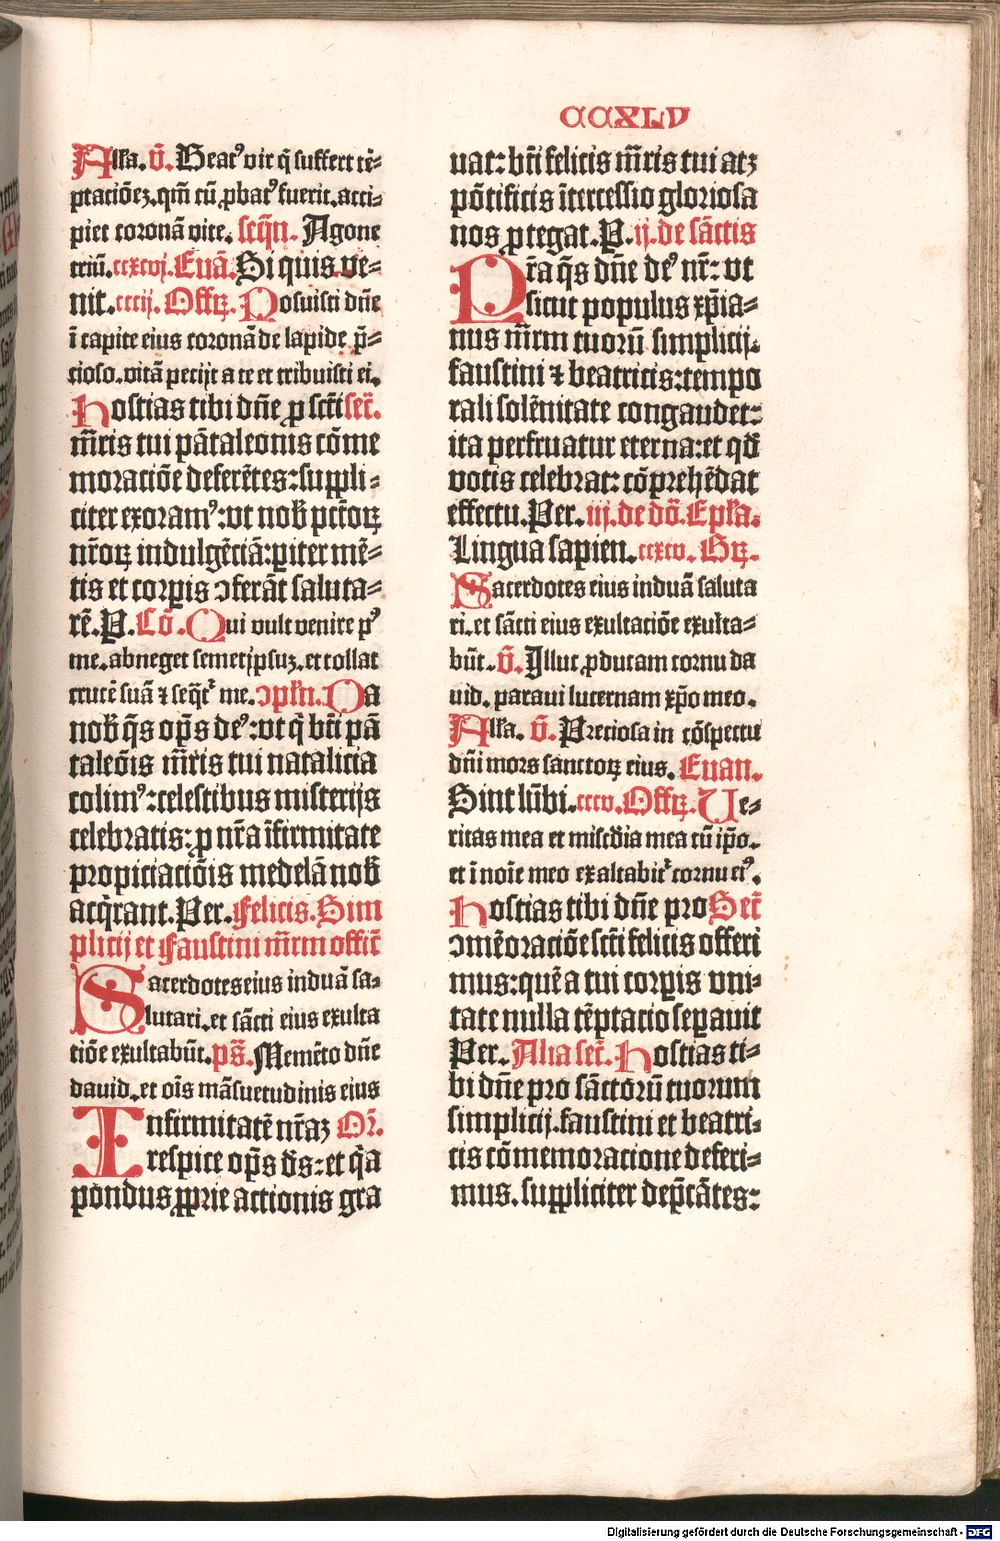 CCXLV
Alľa. v̄. Beatꝰ vir q̄ suffert tē⸗
ptaciōeȝ.qm̄ cū ꝓbatꝰ fuerit.acci⸗
piet coronā vite. seq̄n. Agone
triū.ccxcvj.Euā.Si quis ve⸗
nit.cccij. Offꝝ. Posuisti dn̄e
ī capite eius coronā de lapide p̄⸗
cioso.vitā pecijt a te et tribuisti ei.
Hostias tibi dn̄e ꝓ scti secͬ.
mr̄is tui pātaleonis cōme
moraciōe deferētes:suppli⸗
citer exoramꝰ:vt nob̄ pctōꝝ
nr̄oꝝ indulgēciā:piter mē⸗
tis et corpis ↄferāt saluta⸗
rē.P.Cō. Qui vult venire pꝰ
me.abneget semetip̄suȝ.et tollat
crucē suā ⁊ seqͭr me.ↄpľn. Da
nob̄ q̄s op̄s deꝰ:vt q̄ bt̄i pā
taleōis mr̄is tui natalicia
colimꝰ:celestibus misterijs
celebratis:ꝓ nr̄a īfirmitate
propiciaciōis medelā nob̄
acq̄rant.Per.Felicis.Sim
plicij et Faustini mr̄m officͫ
Sacerdotes eius induā sa⸗
lutari.et sācti eius exulta
tiōe exultabūt.ps̄.Memēto dn̄e
dauid.et oīs māsuetudinis eius
Infirmitatē nr̄aȝ Or̄.
respice op̄s ds̄:et q̄a
pondus ꝓprie actionis gra
uat:bt̄i felicis mr̄is tui atȝ
pōtificis ītercessio gloriosa
nos ꝓtegat.P.ij.de sāctis
Pr̄a q̄s dn̄e deꝰ nr̄:vt
sicut populus xp̄ia⸗
nus mr̄m tuorū simplicij.
faustini ⁊ beatricis:tempo
rali solēnitate congaudet:
ita perfruatur eterna:et qd̄
votis celebrat:cōprehēdat
effectu.Per.iij.de dō.Epľa.
Lingua sapien.ccxcv. Gꝝ.
Sacerdotes eius induā saluta
ri.et sācti eius exultaciōe exulta⸗
būt.v̄.Illuc ꝓducam cornu da
uid.paraui lucernam xp̄o meo.
Alľa. v̄. Preciosa in cōspectu
dn̄i mors sanctoꝝ eius. Euan.
Sint lūbi.cccv.Offꝝ.Ve⸗
ritas mea et miscd̄ia mea cū ip̄o.
et ī noīe meo exaltabitͬ cornu eiꝰ.
Hostias tibi dn̄e pro Secͬ
ↄmēoraciōe scti felicis offeri
mus:quē a tui corpis vni⸗
tate nulla tēptacio sepauit
Per. Alia secͬ. Hostias ti⸗
bi dn̄e pro sāctorū tuorum
simplicij.faustini et beatri⸗
cis cōmemoracione deferi⸗
mus.suppliciter dep̄cātes:
Digitalisierung gefördert durch die Deutsche Forschungsgemeinschaft - DFG